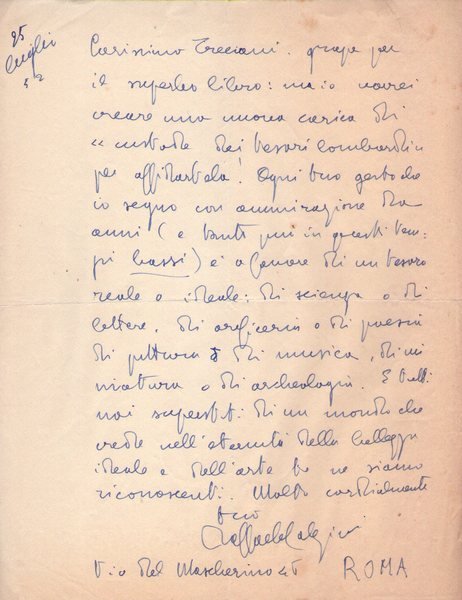 25
luglio
52
Carissimo Treccani. grazie per
il superbo libro: ma io vorrei
creare una nuova carica di
"custode dei tesori lombardi"
per affidartela! Ogni tuo gesto che
io seguo con ammirazione da
anni (e tanto più in questi tem-
pi bassi) è a favore di un tesoro
reale o ideale: di scienza o di
lettere, di oreficeria o di poesia
di pittura o di musica, di mi
niatura o di archeologia. E tutti
noi superstiti di un mondo che
crede nell'eternità della bellezza
ideale e dell'arte te ne siamo
riconoscenti. Molto cordialmente
tuo
Raffaele Calzini
Via del Mascherino 45 ROMA